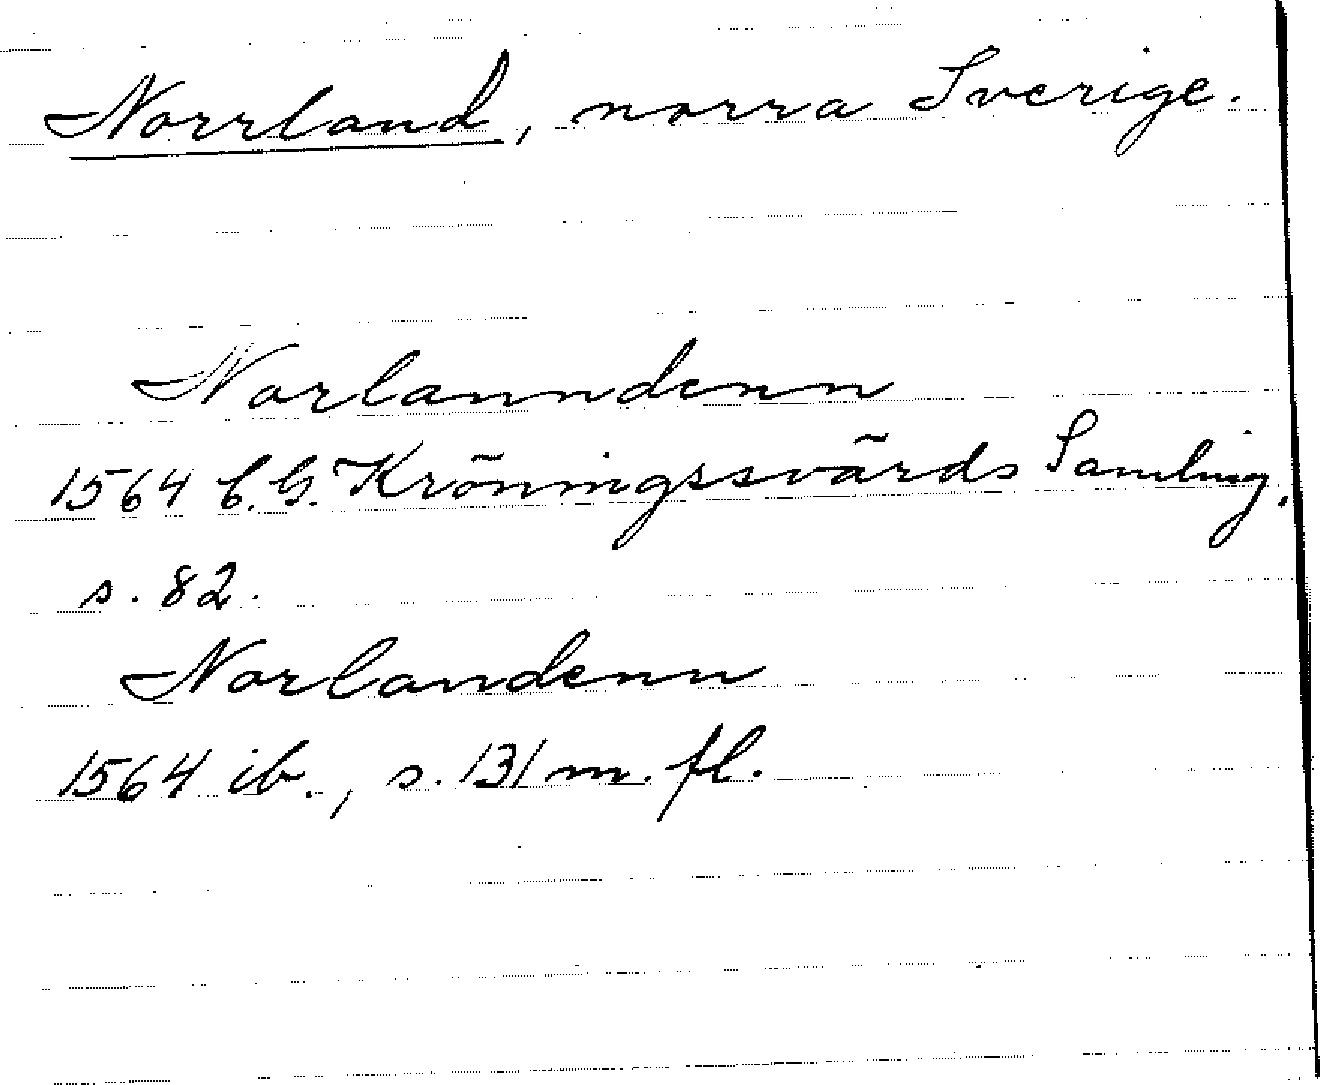 Norrland, norra Sverige.
Norlanndenn
1564 C. G. Kröningssvärds Samling,
s. 82.
Norlandenn
1564 ib., s. 131 m. fl.